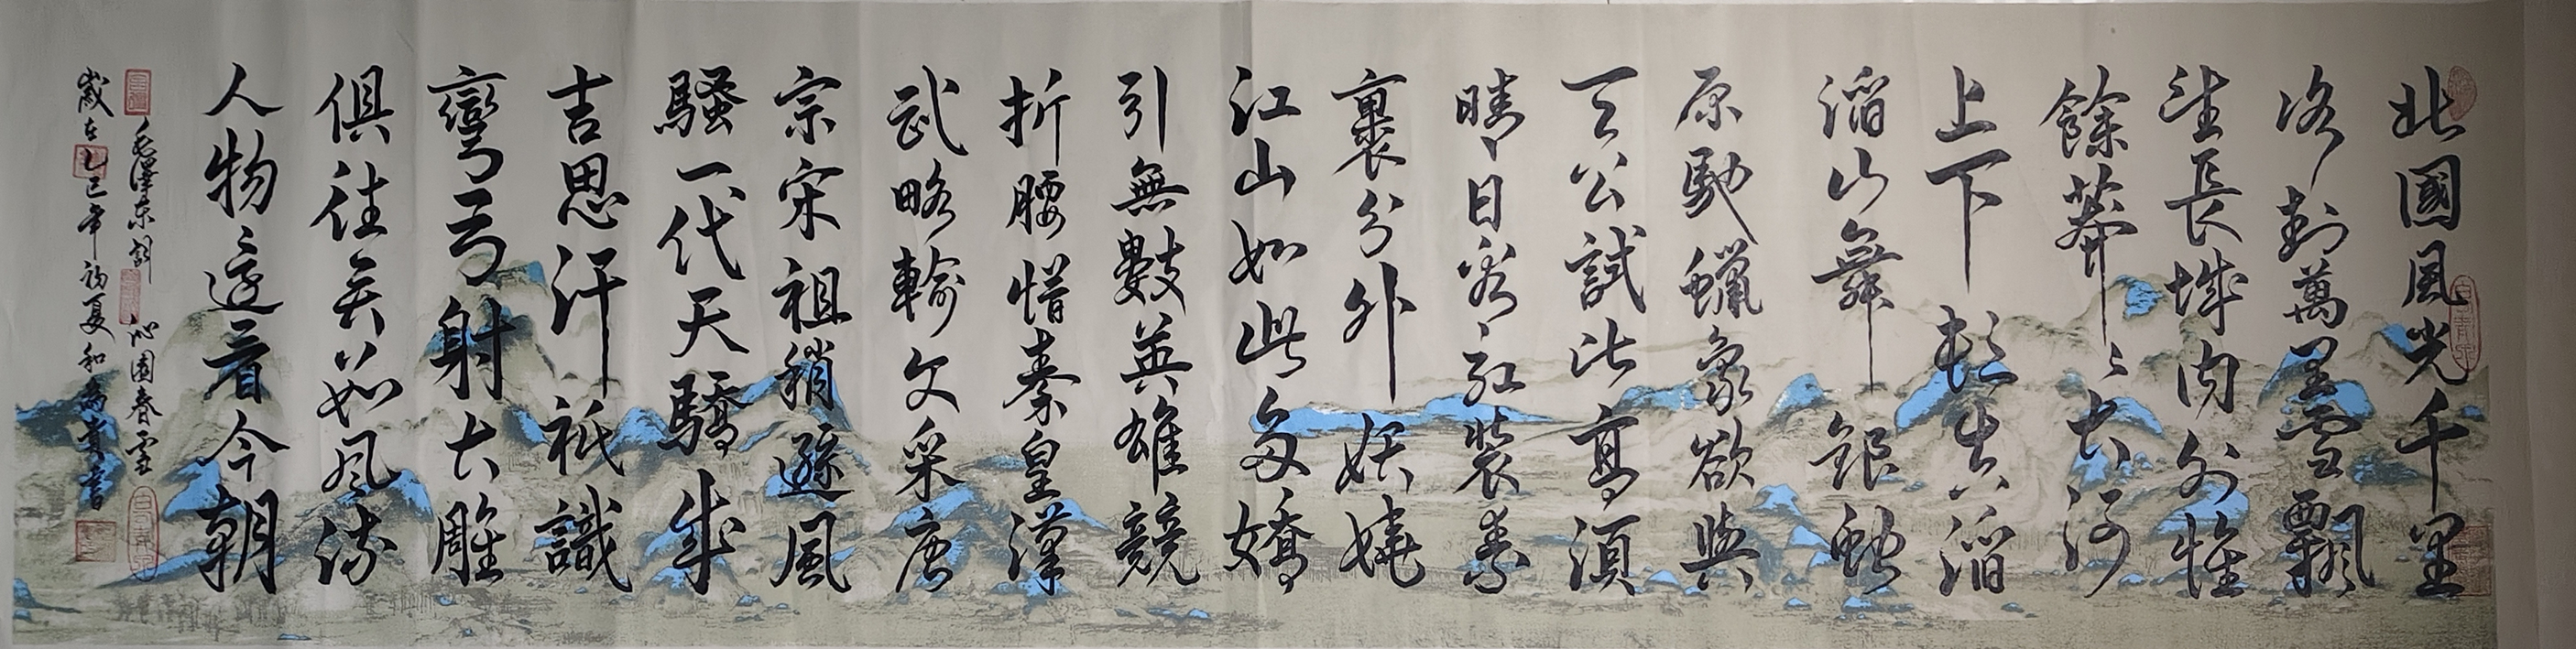 北國風光千里
冰封萬里雪飄
望長城內外惟
餘莽〻大河
上下頓失滔
滔山舞銀蛇
原馳蠟象欲與
天公試比高須
晴日看紅裝素
裹分外妖嬈
江山如此多嬌
引無數英雄競
折腰惜秦皇漢
武略輸文采唐
宗宋祖稍遜風
騷一代天驕成
吉思汗祇識
彎弓射大雕
俱往矣數風流
人物還看今朝
毛澤东詞 沁園春雪
歲在乙巳年初夏和為貴書